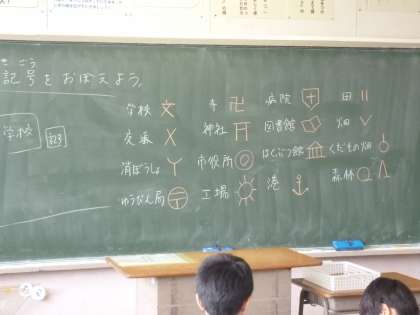 きごう
記号をおぼえよう。
学校
文
交番
X
消ぼうしょ
Y
ゆうびん局
〒
寺
卍
神社
市役所
◎
工場
病院
図書館
はくぶつ館
港
田
畑
くだもの畑
森林
学校